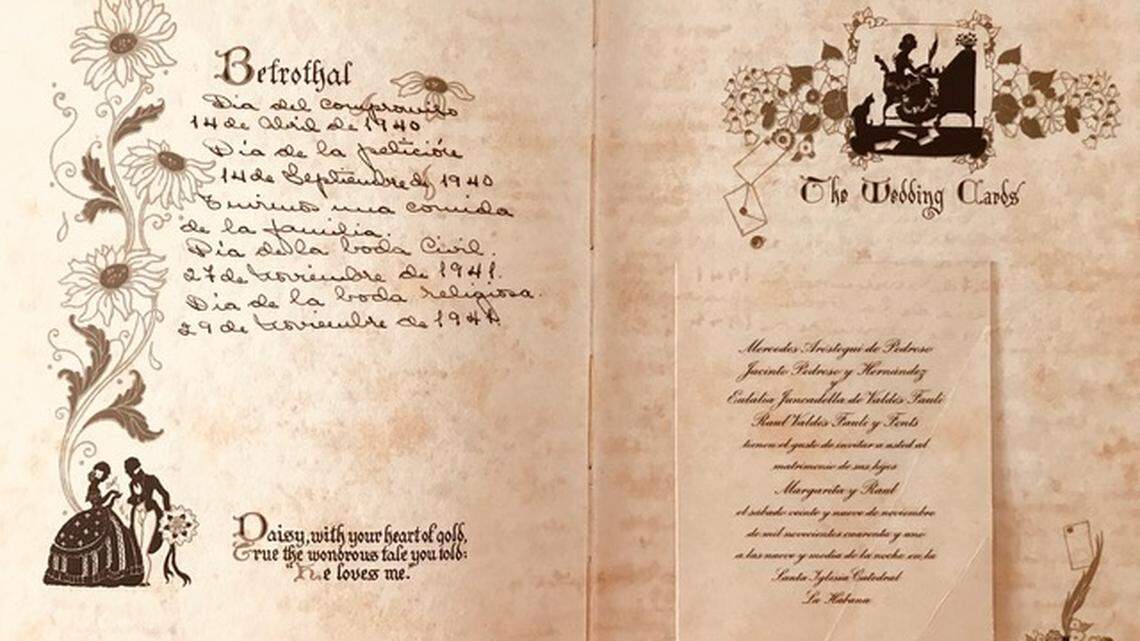 Betrothal
Dia del compromiso
14 de Abril de 1940
Dia de la petición
14 de Septiembre de 1940
Tuvimos una comida
de la familia.
Dia de la boda Civil.
27 de Noviembre de 1941.
Dia de la boda religiosa.
29 de Noviembre de 1941.
Daisy, with your heart of gold,
True the wondrous tale you told:
"He loves me."
The Wedding Cards
Mercedes Aróstegui de Pedroso
Jacinto Pedroso y Hernández
y
Eulalia Juncadella de Valdés Fauli
Raul Valdés Fauli y Fonts
tienen el gusto de invitar a usted al
matrimonio de sus hijos
Margarita y Raul
el sábado veinte y nueve de noviembre
de mil novecientos cuarenta y uno
a las nueve y media de la noche en la
Santa Iglesia Catedral
La Habana